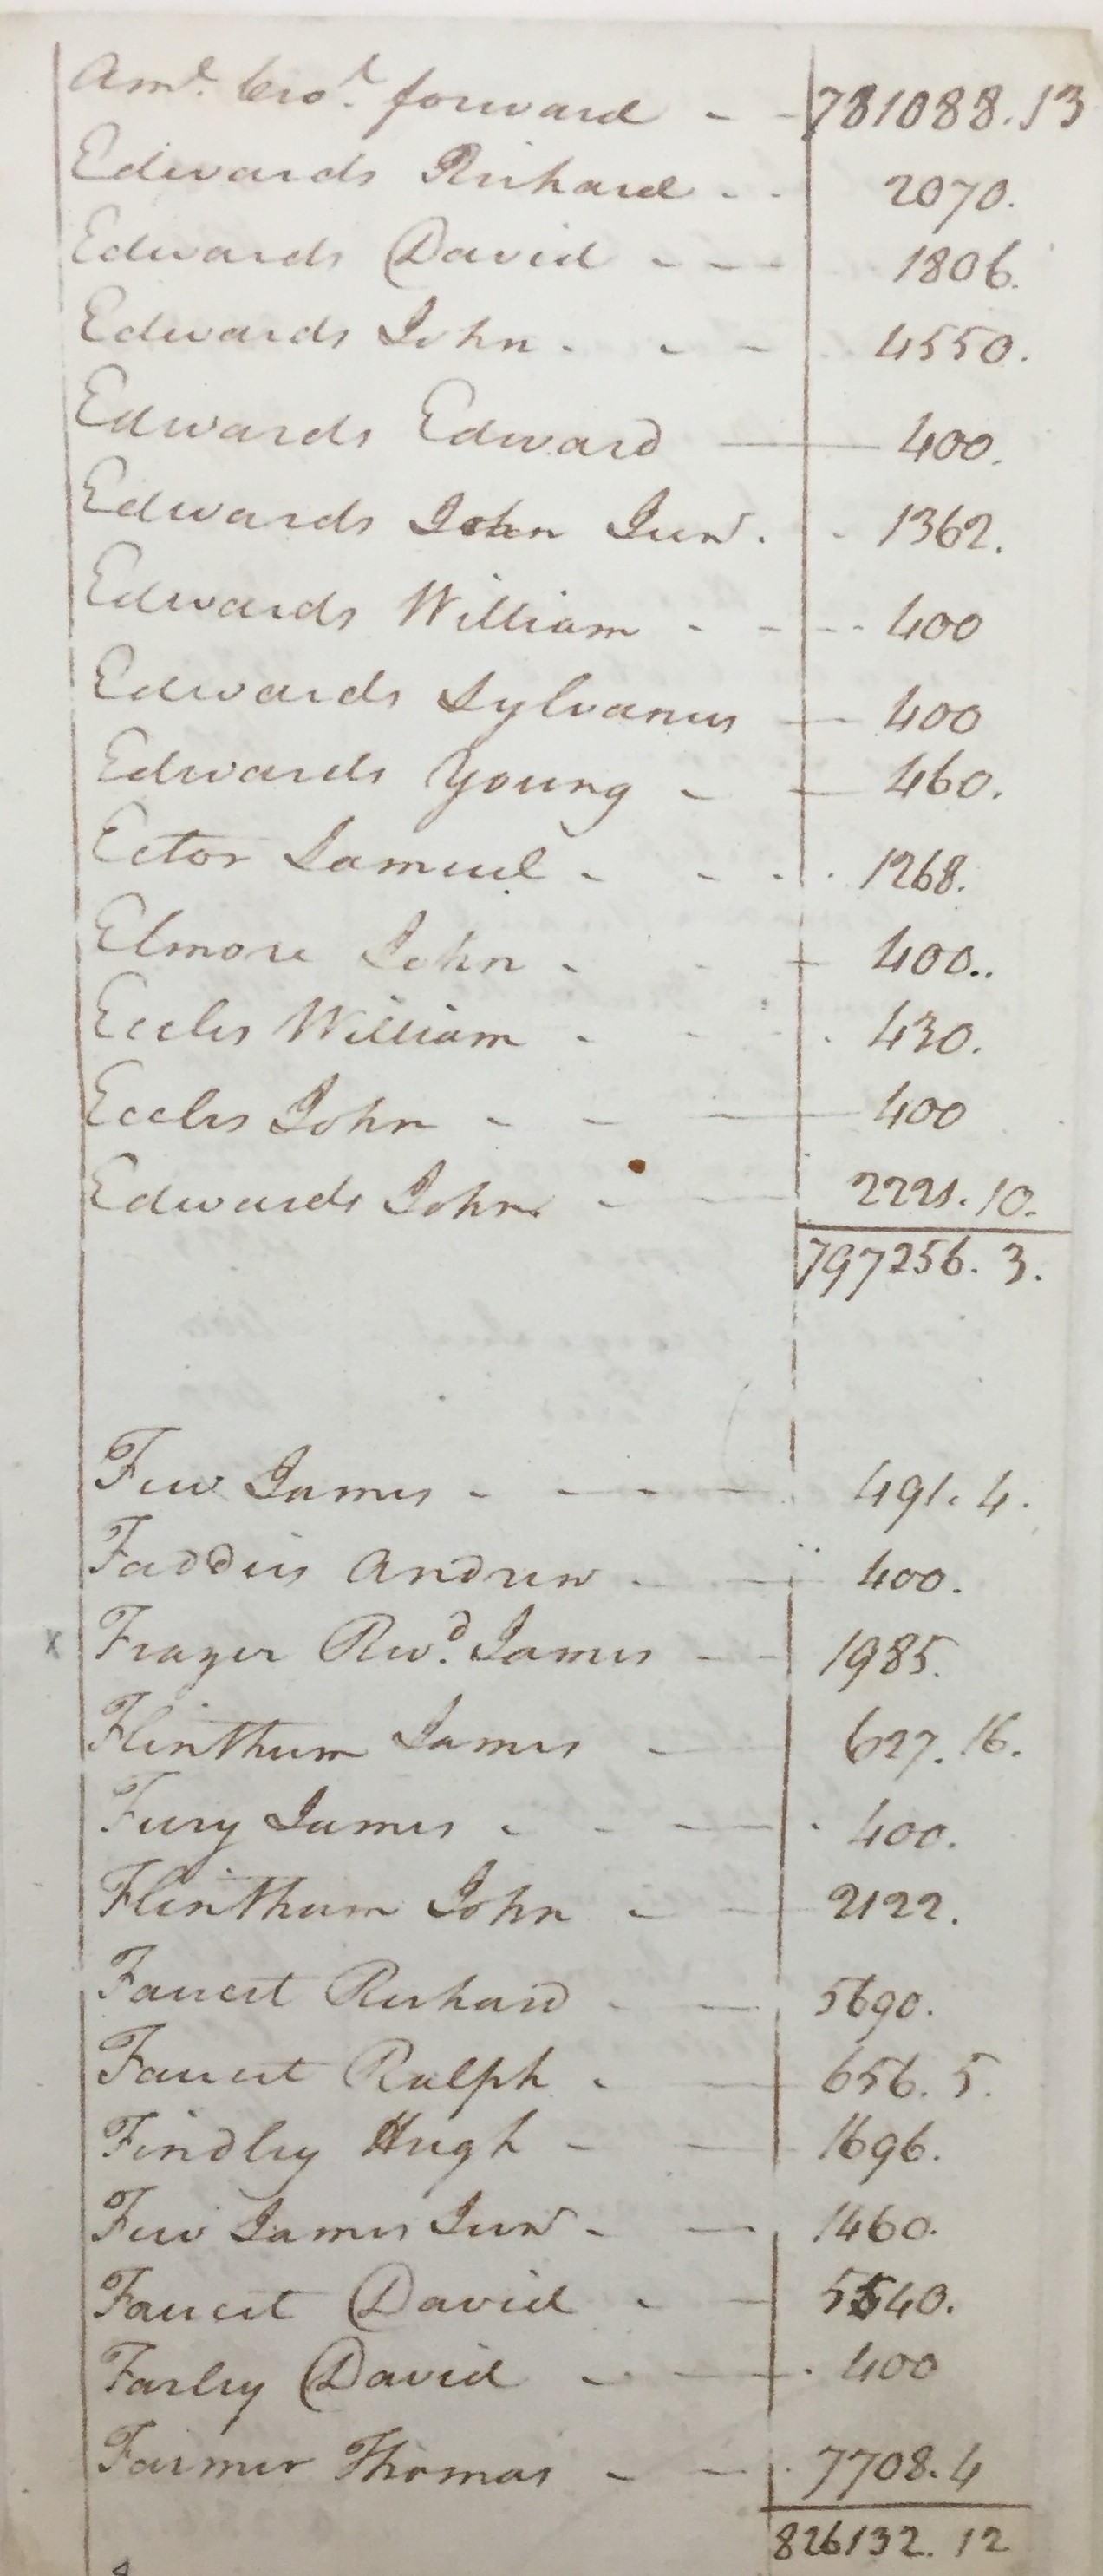 Amt. bro.t forward - - 781088.13
Edwards Richard - - 2070.
Edwards David - - - 1806.
Edwards John - - - 4550.
Edwards Edward — 400.
Edwards John Junr. - 1362.
Edwards William - - - 400
Edwards Sylvanus — 400
Edwards Young - — 460.
Ector Samuel - - - 1268.
Elmore John - - - 400..
Eccles William - - - 430.
Eccles John - - — 400
Edwards John - — 2221.10.
797256.3.
Few James - - - — 491.4.
Faddis Andrew - — 400.
x Frazer Revd. James - — 1985.
Flinthum James — 627.16.
Fury James - - — 400.
Flinthum John - — 2122.
Faucet Richard - — 5690.
Faucet Ralph - — 656.5.
Findley Hugh - — 1696.
Few James Junr - — 1460.
Faucet David - — 5540.
Farley David - — 400
Farmer Thomas - — 7708.4
826132.12